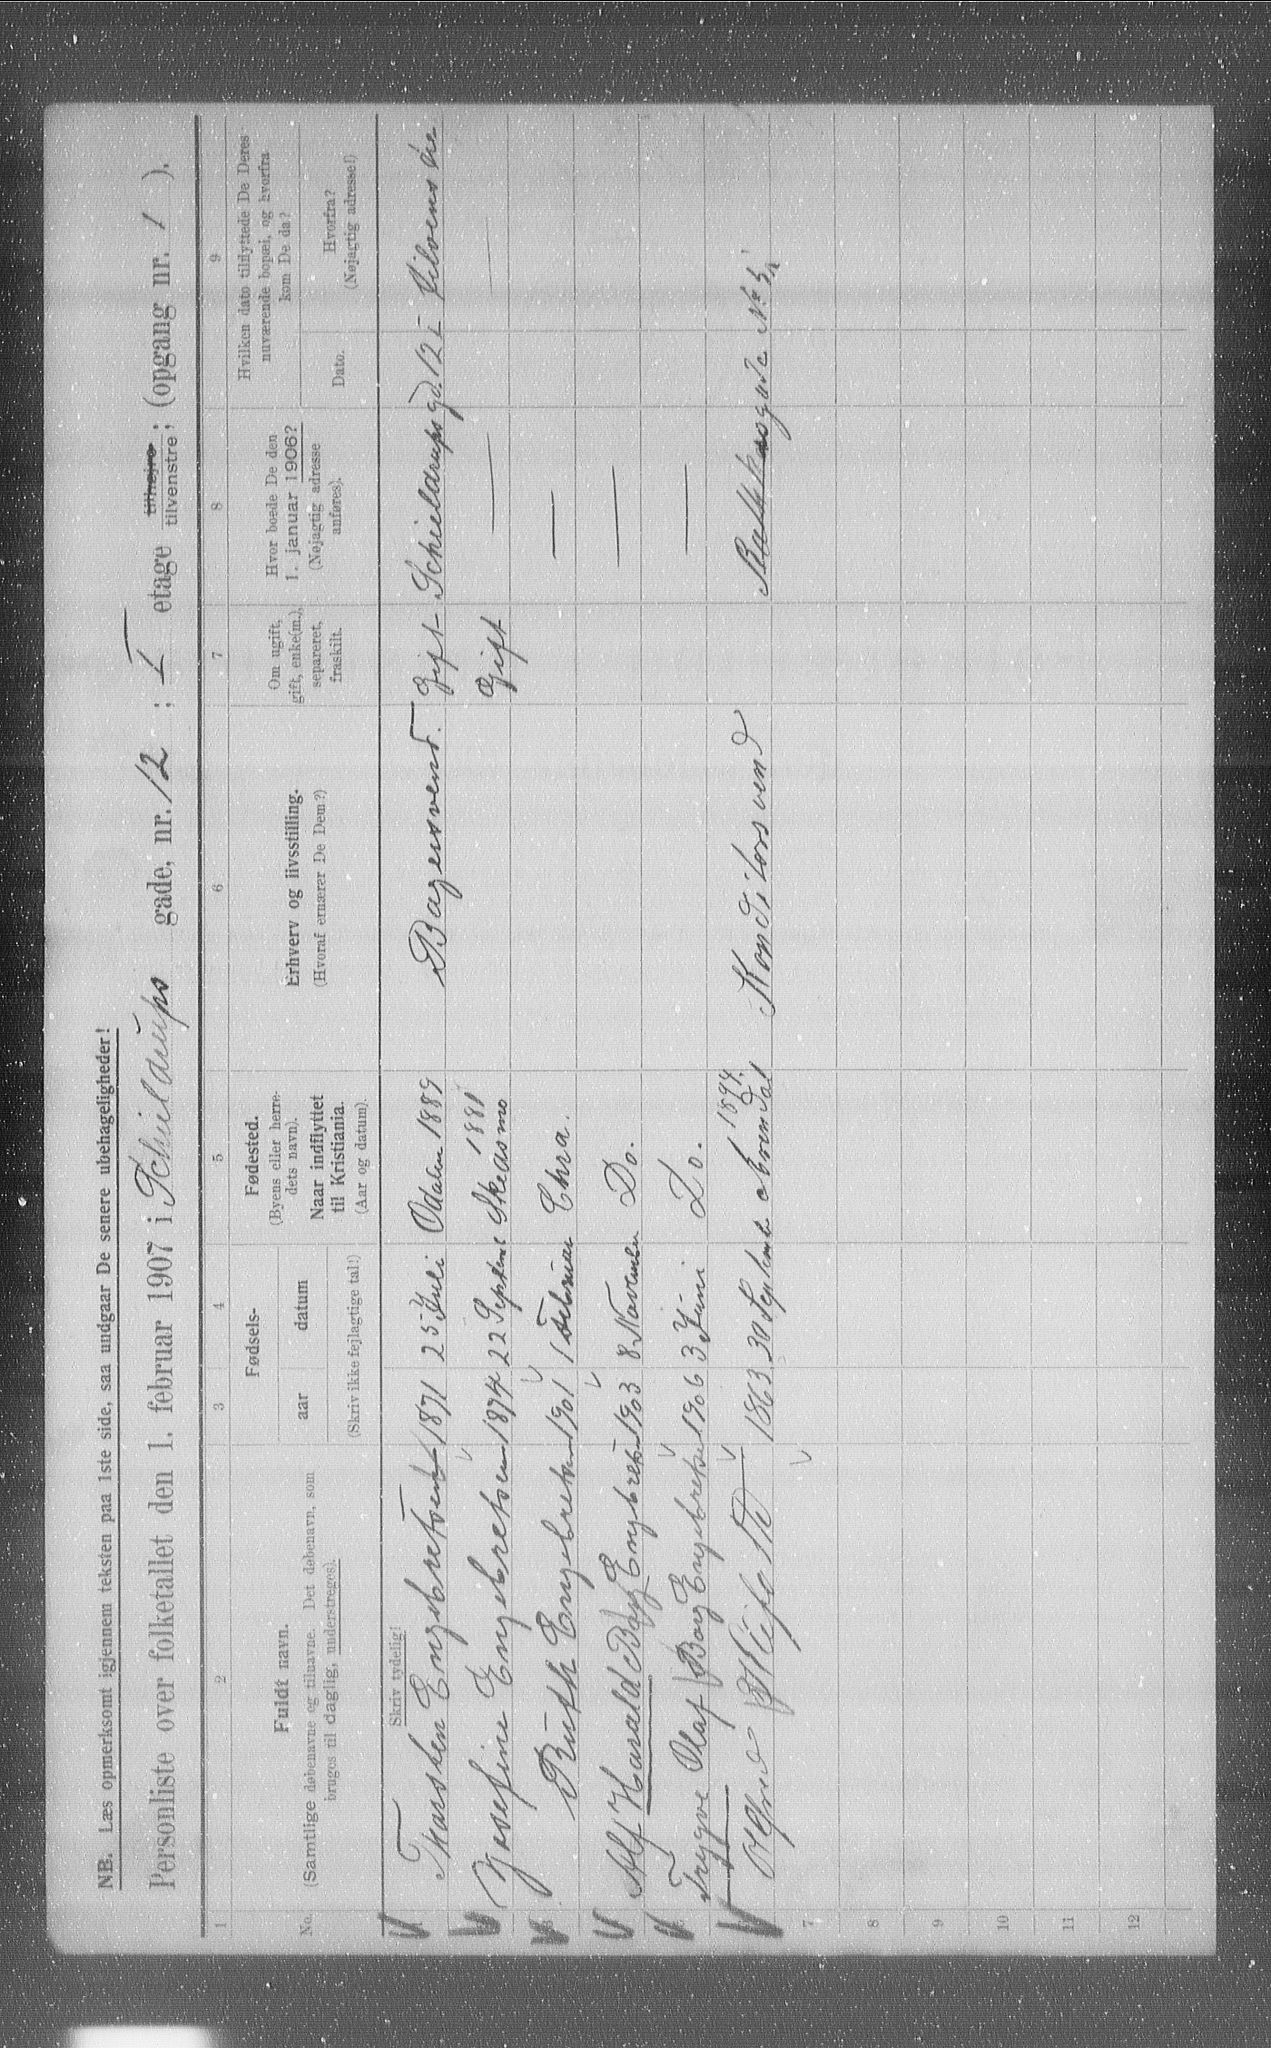 NB. Læs opmerksomt igjennem teksten paa 1ste side, saa undgaar De senere ubehageligheder!
Personliste over folketallet den 1. februar 1907 i Schieldrups gade, nr. 12 ; I etage tilhøjre tilvenstre; (opgang nr. 1 ).
1 2 3 4 5 6 7 8 9
No.
Fuldt navn.
(Samtlige døbenavne og tilnavne. Det døbenavn, som
bruges til daglig, understreges).
Fødsels-
aar datum
(Skriv ikke fejlagtige tal!)
Fødested.
(Byens eller herre-
dets navn).
Naar indflyttet
til Kristiania.
(Aar og datum).
Erhverv og livsstilling.
(Hvoraf ernærer De Dem?)
Om ugift,
gift, enke(m.),
separeret,
fraskilt.
Hvor boede De den
1. januar 1906?
(Nøjagtig adresse
anføres).
Hvilken dato tilflyttede De Deres
nuværende bopæl, og hvorfra
kom De da?
Dato.
Hvorfra?
(Nøjagtig adresse!)
Skriv tydelig!
Thorsten Engebretsen 1871 25 Juli Odalen 1889 Bagersvend. Gift Schieldrupsgd. 12
Josefine Engebretsen 1874 22 Septem 1881 Skedsmo Gift —
Ruth Engebretsen 1901 1 Februar Chra. —
Alf Harald Borg Engebretsen 1903 8 November Do. —
Trygve Olaf Borg Engebretsen 1906 3 Juni Do. —
1863 30 Septembe 1894 Konditorsvend
7
8
9
10
11
12